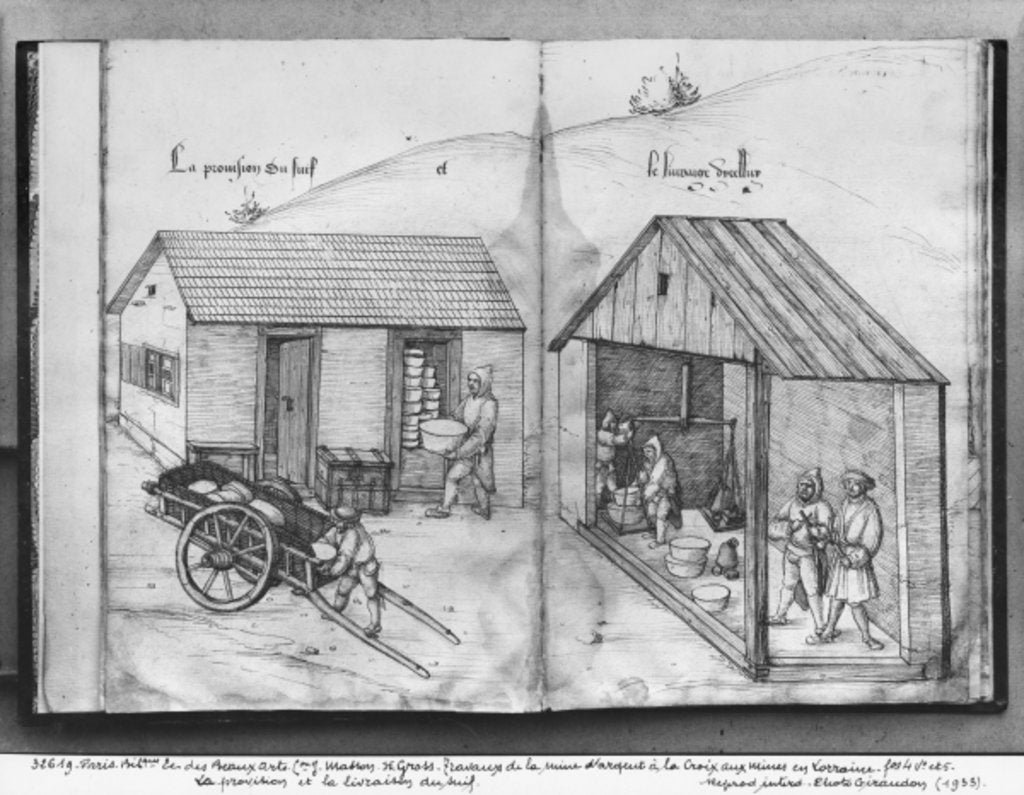 La provision du suif et le livraige dycelluy
32619. Paris. Bibl. Ec. des Beaux Arts. (Don J. Masson. H Gross. Travaux de la mine d'argent à la Croix aux mines en Lorraine. fos 4 Vo et 5.
La provision et la livraison du suif. Reprod. interd. Photo Giraudon (1933).